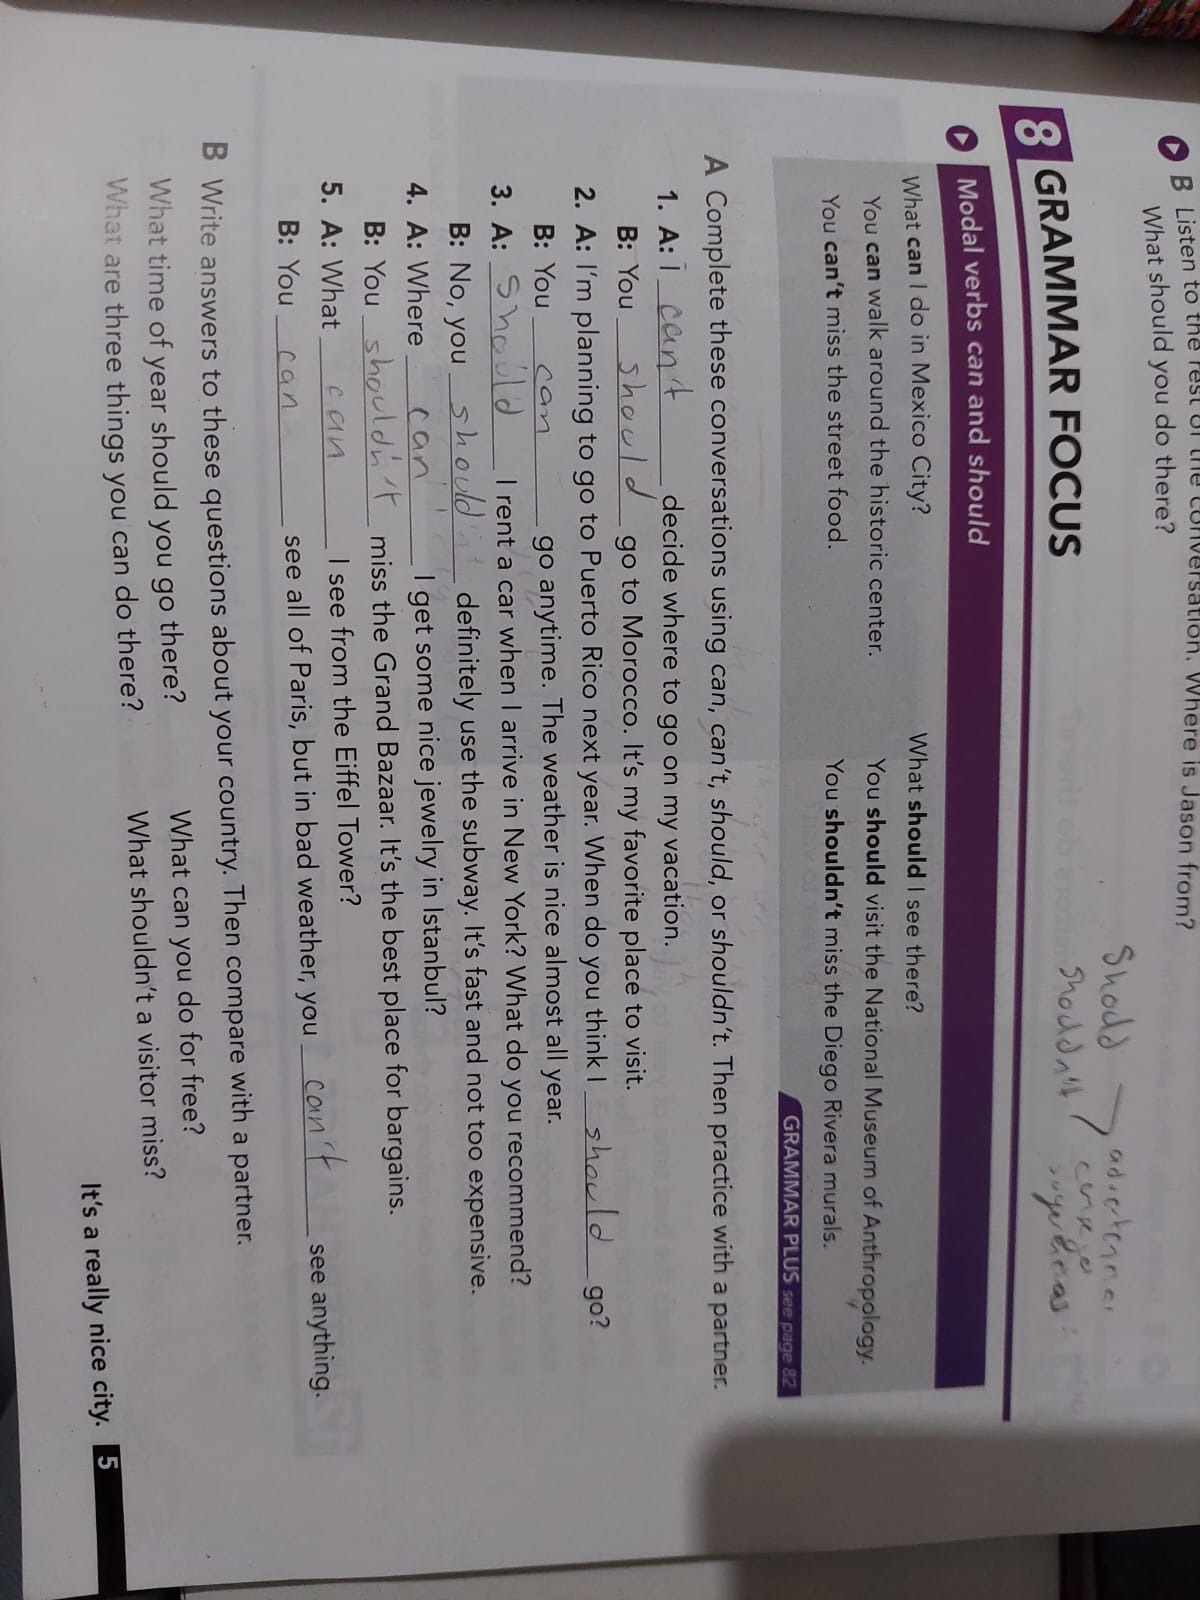 B Listen to the rest of the conversation. Where is Jason from?
What should you do there?
Should
8 GRAMMAR FOCUS
Modal verbs can and should
What can I do in Mexico City?
You can walk around the historic center.
You can't miss the street food.
What should I see there?
You should visit the National Museum of Anthropology.
You shouldn't miss the Diego Rivera murals.
GRAMMAR PLUS see page 82
A Complete these conversations using can, can't, should, or shouldn't. Then practice with a partner.
1. A: I can't decide where to go on my vacation.
B: You should go to Morocco. It's my favorite place to visit.
2. A: I'm planning to go to Puerto Rico next year. When do you think I should go?
B: You can go anytime. The weather is nice almost all year.
3. A: Should I rent a car when I arrive in New York? What do you recommend?
B: No, you shouldn't definitely use the subway. It's fast and not too expensive.
4. A: Where can I get some nice jewelry in Istanbul?
B: You shouldn't miss the Grand Bazaar. It's the best place for bargains.
5. A: What can I see from the Eiffel Tower?
B: You can see all of Paris, but in bad weather, you can't see anything.
B Write answers to these questions about your country. Then compare with a partner.
What time of year should you go there?
What are three things you can do there?
What can you do for free?
What shouldn't a visitor miss?
It's a really nice city. 5